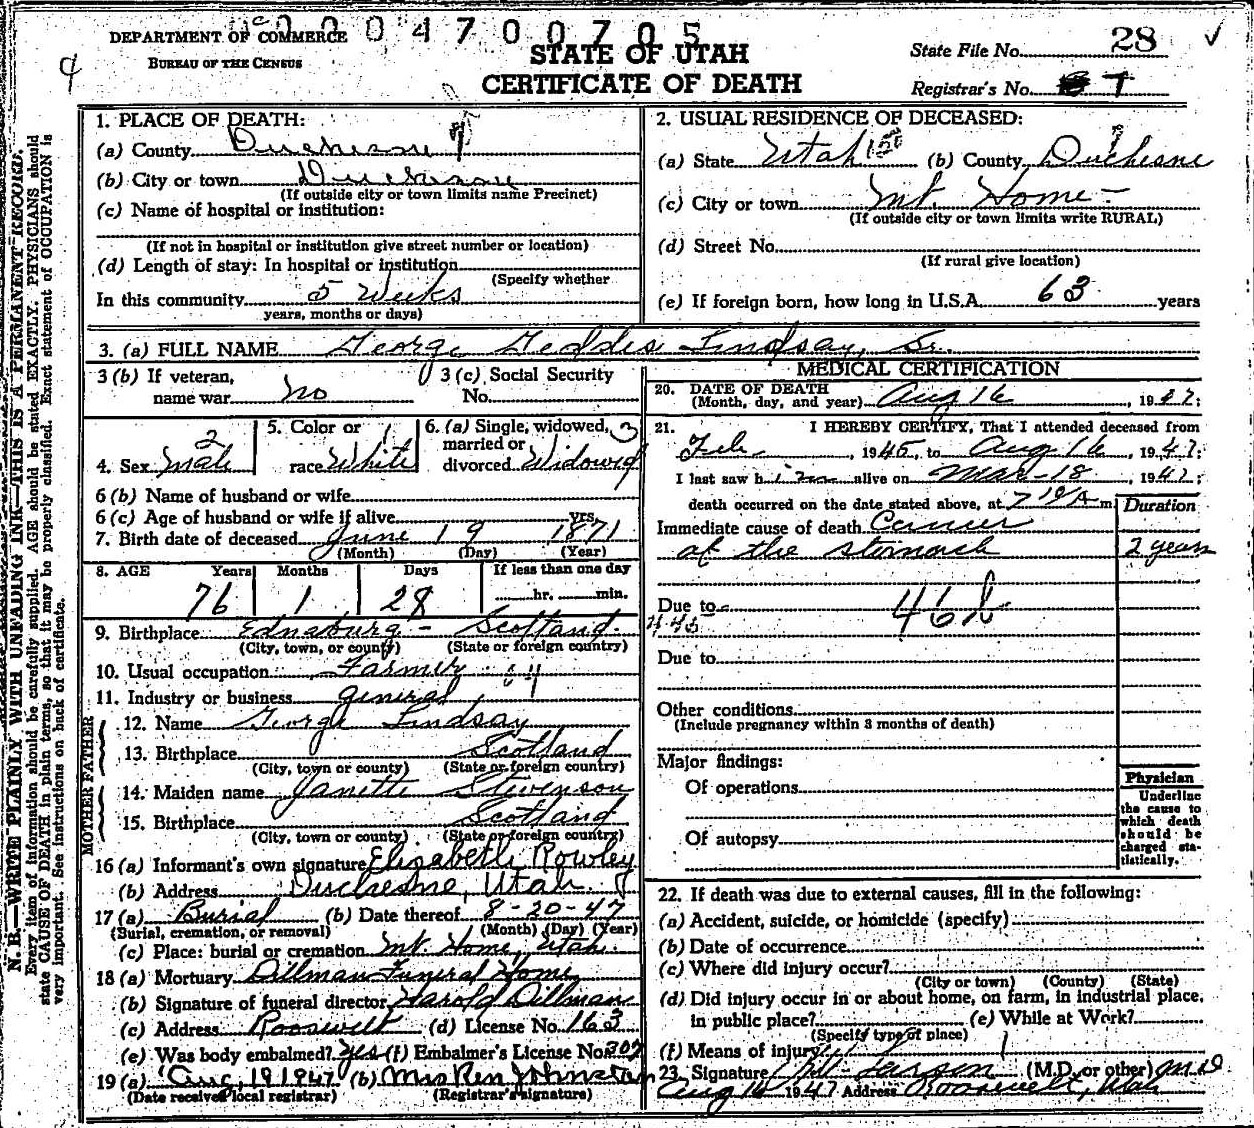 2 0 4 7 0 0 7 0 5
DEPARTMENT OF COMMERCE
BUREAU OF THE CENSUS
STATE OF UTAH
CERTIFICATE OF DEATH
State File No. 28
Registrar's No. 7
1. PLACE OF DEATH:
(a) County Duchesne
(b) City or town Duchesne
(If outside city or town limits name Precinct)
(c) Name of hospital or institution:
(If not in hospital or institution give street number or location)
(d) Length of stay: In hospital or institution
(Specify whether
In this community 5 Weeks
years, months or days)
2. USUAL RESIDENCE OF DECEASED:
(a) State Utah (b) County Duchesne
(c) City or town Mt. Home
(If outside city or town limits write RURAL)
(d) Street No.
(If rural give location)
(e) If foreign born, how long in U.S.A. 63 years
3. (a) FULL NAME George Geddes Lindsay, Sr.
3 (b) If veteran, name war no
3 (c) Social Security No.
4. Sex Male
5. Color or race White
6. (a) Single, widowed, married or divorced Widowed
6 (b) Name of husband or wife
6 (c) Age of husband or wife if alive yrs.
7. Birth date of deceased June 19 1871
(Month) (Day) (Year)
8. AGE Years Months Days If less than one day
76 1 28 hr. min.
9. Birthplace Scotland
(City, town, or county) (State or foreign country)
10. Usual occupation Farmer
11. Industry or business general
FATHER
12. Name George Lindsay
13. Birthplace Scotland
(City, town or county) (State or foreign country)
MOTHER
14. Maiden name Janette Stevenson
15. Birthplace Scotland
(City, town or county) (State or foreign country)
16 (a) Informant's own signature Elizabeth Rowley
(b) Address Duchesne, Utah
17 (a) Burial (b) Date thereof 8-20-47
(Burial, cremation, or removal) (Month) (Day) (Year)
(c) Place: burial or cremation Mt. Home, Utah.
18 (a) Mortuary Dillman Funeral Home
(b) Signature of funeral director Harold Dillman
(c) Address Roosevelt (d) License No. 163
(e) Was body embalmed? yes (f) Embalmer's License No. 307
19 (a) Aug, 19 1947 (b) Mrs Ren Johnston
(Date received local registrar) (Registrar's signature)
MEDICAL CERTIFICATION
20. DATE OF DEATH
(Month, day, and year) Aug 16, 1947:
21. I HEREBY CERTIFY, That I attended deceased from
Feb, 1945, to Aug 16, 1947:
I last saw him alive on Mar-18, 1947;
death occurred on the date stated above, at 7 10 A m.
Duration
Immediate cause of death Cancer
of the stomach 2 years
Due to 46b
Due to
Other conditions
(Include pregnancy within 3 months of death)
Major findings:
Of operations
Of autopsy
Physician
Underline
the cause to
which death
should be
charged sta-
tistically.
22. If death was due to external causes, fill in the following:
(a) Accident, suicide, or homicide (specify)
(b) Date of occurrence
(c) Where did injury occur?
(City or town) (County) (State)
(d) Did injury occur in or about home, on farm, in industrial place,
in public place? (e) While at Work?
(Specify type of place)
(f) Means of injury
23. Signature Larson (M.D. or other) M D
Aug 16 1947 Address Roosevelt, Utah
N. B.—WRITE PLAINLY WITH UNFADING INK—THIS IS A PERMANENT RECORD.
Every item of information should be carefully supplied. AGE should be stated EXACTLY. PHYSICIANS should
state CAUSE OF DEATH in plain terms, so that it may be properly classified. Exact statement of OCCUPATION is
very important. See instructions on back of certificate.